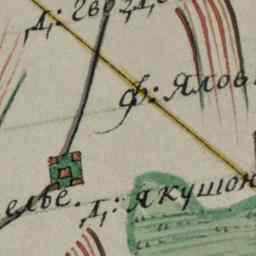 Д: гвоз
ф: Ялов
елье.
Д: Якушон